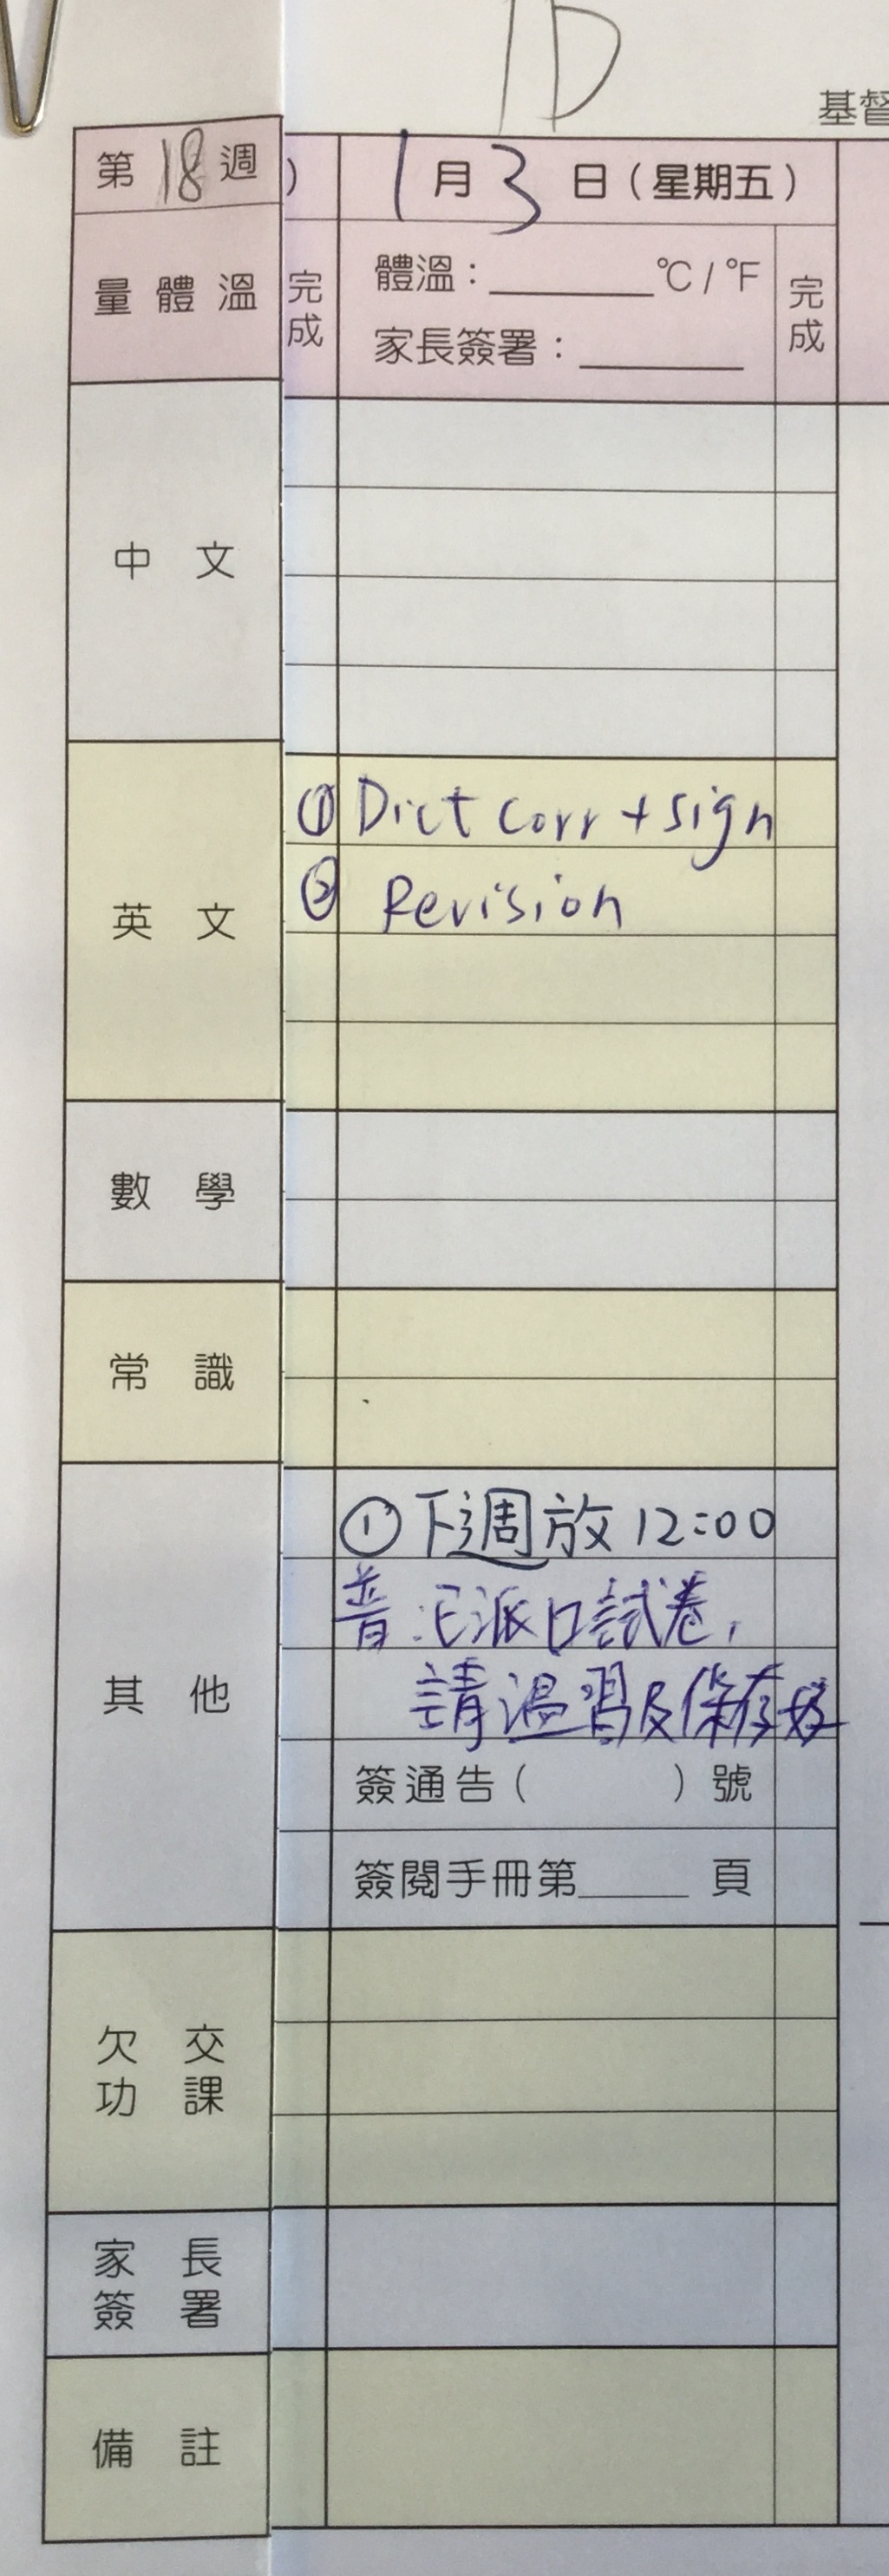 1D
基督
第18週
) 1月3日(星期五)
量體溫
完成
體溫:______°C/°F
家長簽署:______
完成
中文
英文
① Dict Corr + sign
② Revision
數學
常識
其他
① 下週放12:00
普:已派口試卷,
請溫習及保存好
簽通告( )號
簽閱手冊第____頁
欠交功課
家長簽署
備註